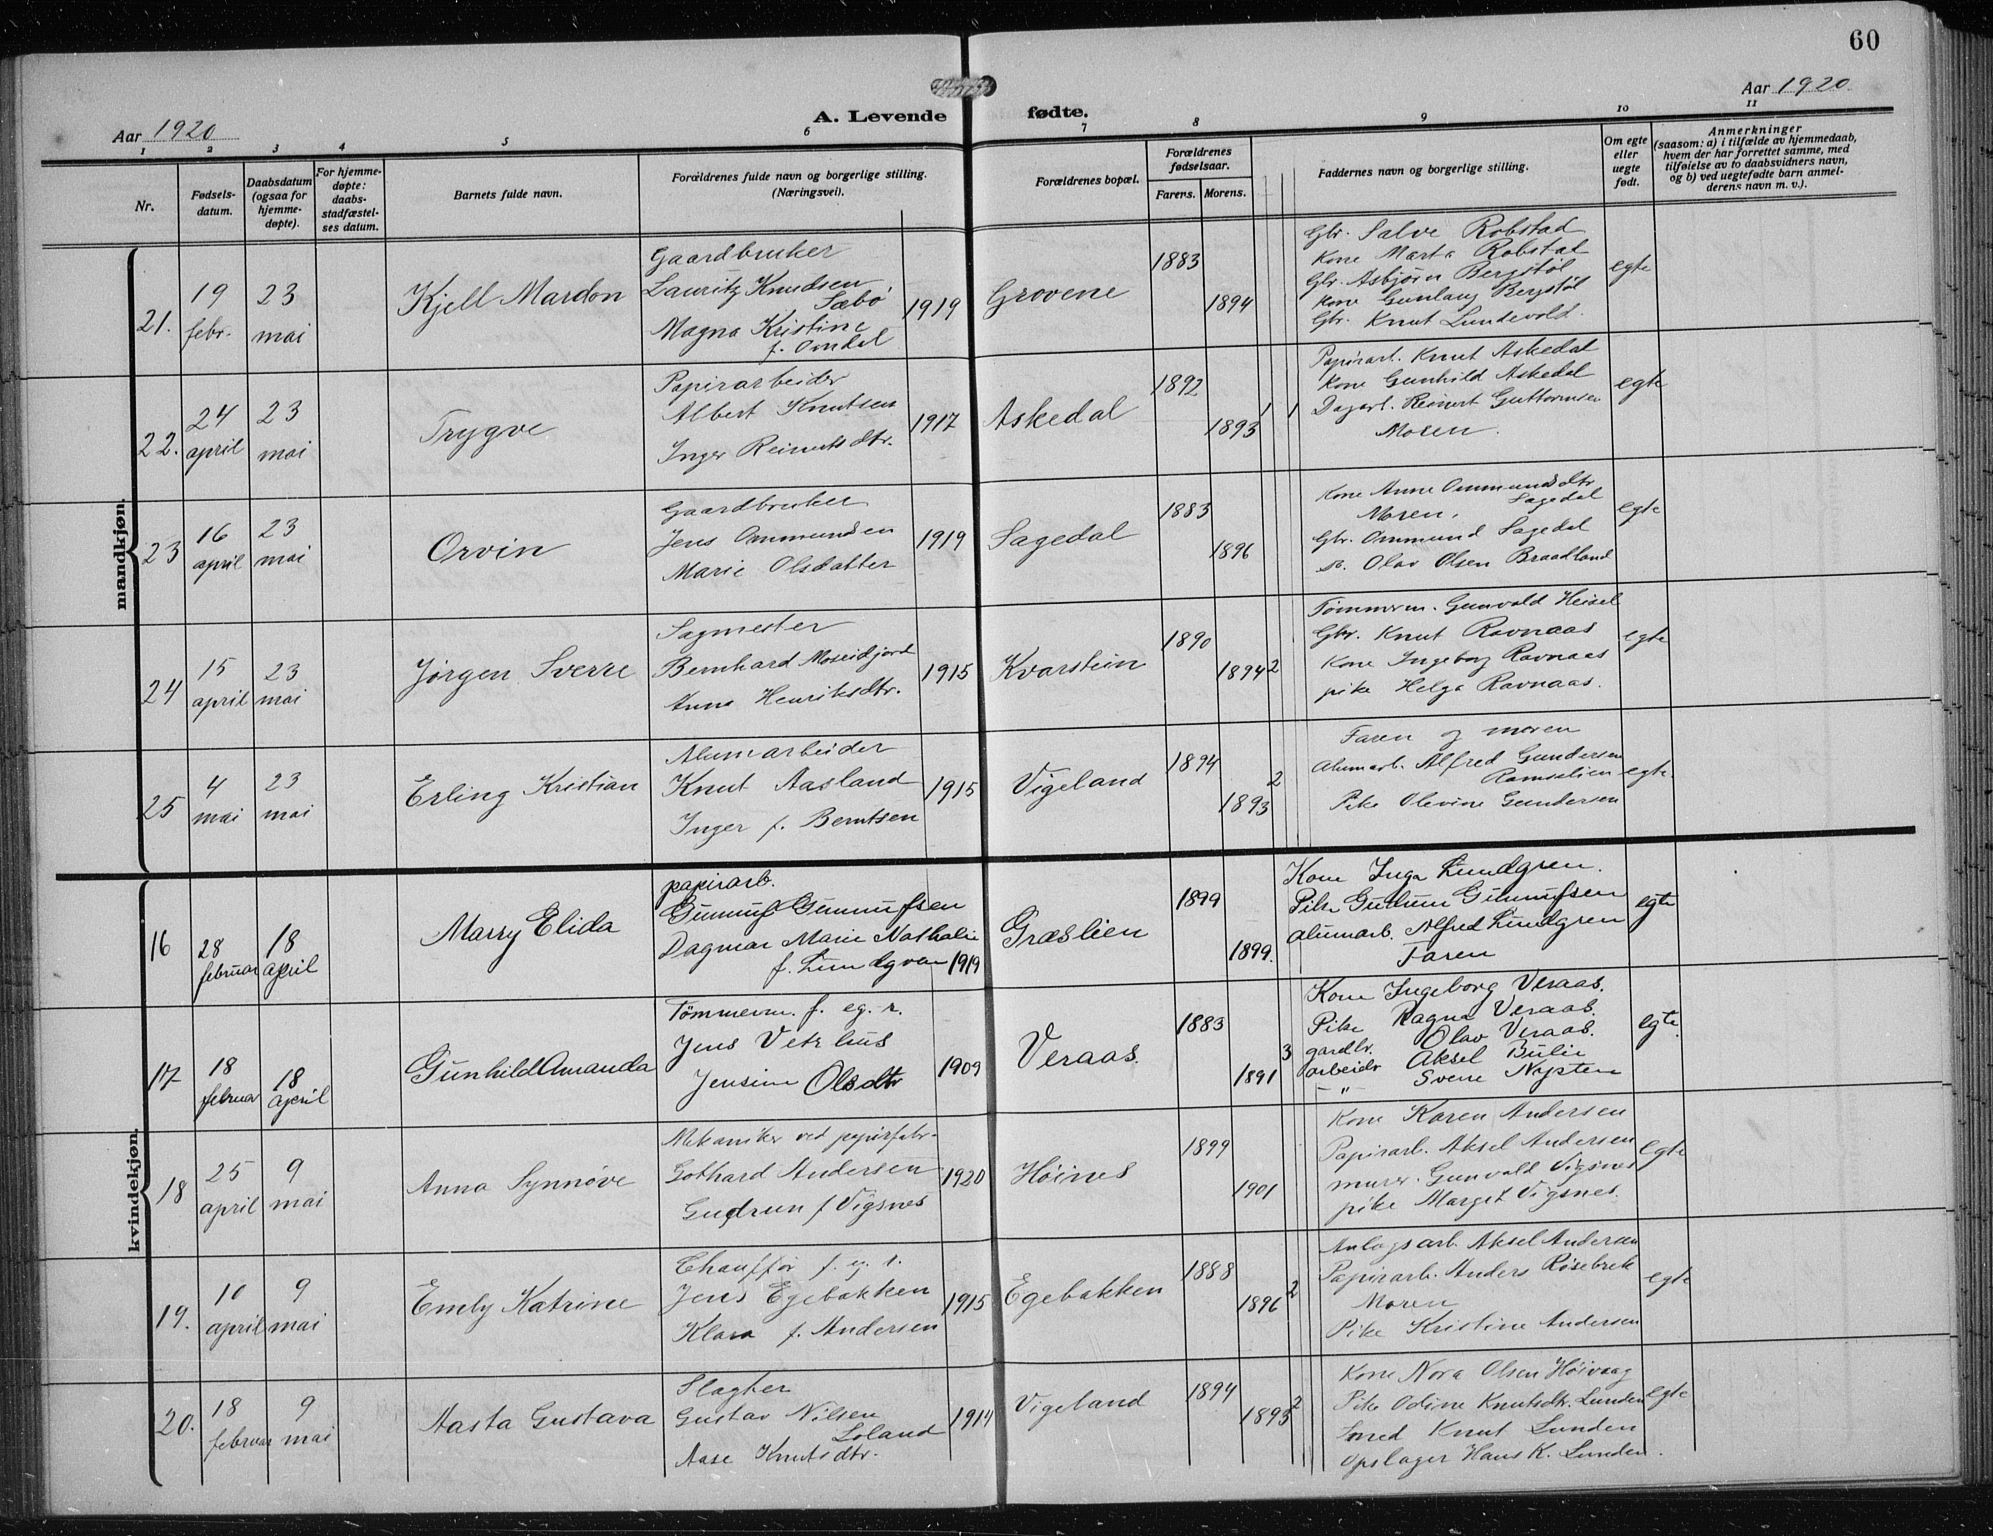 60
Aar 1920
A. Levende fødte.
Aar 1920
1 2 3 4 5 6 7 8 9 10 11
Nr.
Fødsels-
datum.
Daabsdatum
(ogsaa for
hjemme-
døpte).
For hjemme-
døpte:
daabs-
stadfæstel-
ses datum.
Barnets fulde navn.
Forældrenes fulde navn og borgerlige stilling.
(Næringsvei).
Forældrenes bopæl.
Forældrenes
fødselsaar.
Farens. Morens.
Faddernes navn og borgerlige stilling.
Om egte
eller
uegte
født.
Anmerkninger
(saasom: a) i tilfælde av hjemmedaab,
hvem der har forrettet samme, med
tilføielse av to daabsvidners navn,
og b) ved uegtefødte barn anmel-
derens navn m. v.).
mandkjøn.
21.
19
febr.
23
mai
Kjell Mardon
Gaardbruker
Lauritz Knudsen
Sæbø
Magna Kristine
f. Omdal
1919
Grovene
1883
1894
Gbr. Salve Robstad
Kone Marta Robstad
Gbr. Asbjørn Bergstøl
Kone Gunlaug Bergstøl
Gbr. Knut Lundevold.
egte
22.
24
april
23
mai
Trygve
Papirarbeider
Albert Knutsen
Inger Reinertsdtr.
1917
Askedal
1892
1893
1
1
Papirarb. Knut Askedal
Kone Gunhild Askedal
Dagarb. Reinert Guttormsen
Moren.
egte
23
16
april
23
mai
Orvin
Gaardbruker
Jens Ommundsen
Marie Olsdatter
1919
Sagedal
1883
1896
Kone Anne Ommundsdtr
Sagedal
Moren.
Gbr. Ommund Sagedal
Olav Olsen Braadland
egte
24
15
april
23
mai
Jørgen Sverre
Sagmester
Bernhard Moseidjord
Anna Henriksdtr.
1915
Kvarstein
1890
1894
2
Tømmerm. Gunvald Heisel
Gbr. Knut Ravnaas
Kone Ingeborg Ravnaas
pike Helga Ravnaas.
egte
25
4
mai
23
mai
Erling Kristian
Alumarbeider
Knut Aasland
Inger f. Berntsen
1915
Vigeland
1894
1893
2
Faren og moren
Alumarb. Alfred Gundersen
Ramselien
Pike Olevine Gundersen
egte
kvindekjøn.
16
28
februar
18
april
Marry Elida
papirarb.
Gunnuf Gunnufsen
Dagmar Marie Nathalie
f. Lundgren 1919
Græslien
1899
1899.
Kone Inga Lundgren.
Pike Gudrun Gunnufsen
alumarb. Alfred Lundgren
Faren
egte
17
18
februar
18
april
Gunhild Amanda
Tømmerm. f. eg. r.
Jens Vetrhus
Jensine Olsdtr
1909
Veraas.
1883
1891
3
Kone Ingeborg Veraas.
Pike Ragna Veraas.
gardbr. Olav Veraas.
arbeider Aksel Bulie
—"— Svene Nysten
egte.
18
25
april
9
mai
Anna Synnøve
Mekaniker ved papirfabr.
Gothard Andersen
Gudrun f Vigsnes
1920
Høines
1899
1901
Kone Karen Andersen
Papirarb. Aksel Andersen
murer. Gunvald Vigsnes
pike Marget Vigsnes.
egte
19.
10
april
9
mai
Emly Katrine
Chauffør f. eg. r.
Jens Egebakken
Klara f. Andersen
1915
Egebakken
1888
1896
2
Anlagsarb. Aksel Andersen
Papirarb. Anders Røsebrek
Moren
Pike Kristine Andersen
egte
20.
18
februar
9
mai
Aasta Gustava
Slagter
Gustav Nilsen
Loland
Aase Knutsdtr.
1914
Vigeland
1894
1893
2
Kone Nora Olsen Høivaag
Pike Odine Knutsdtr. Lunden
Smed Knut Lunden
Opslager Hans K. Lunden.
egte